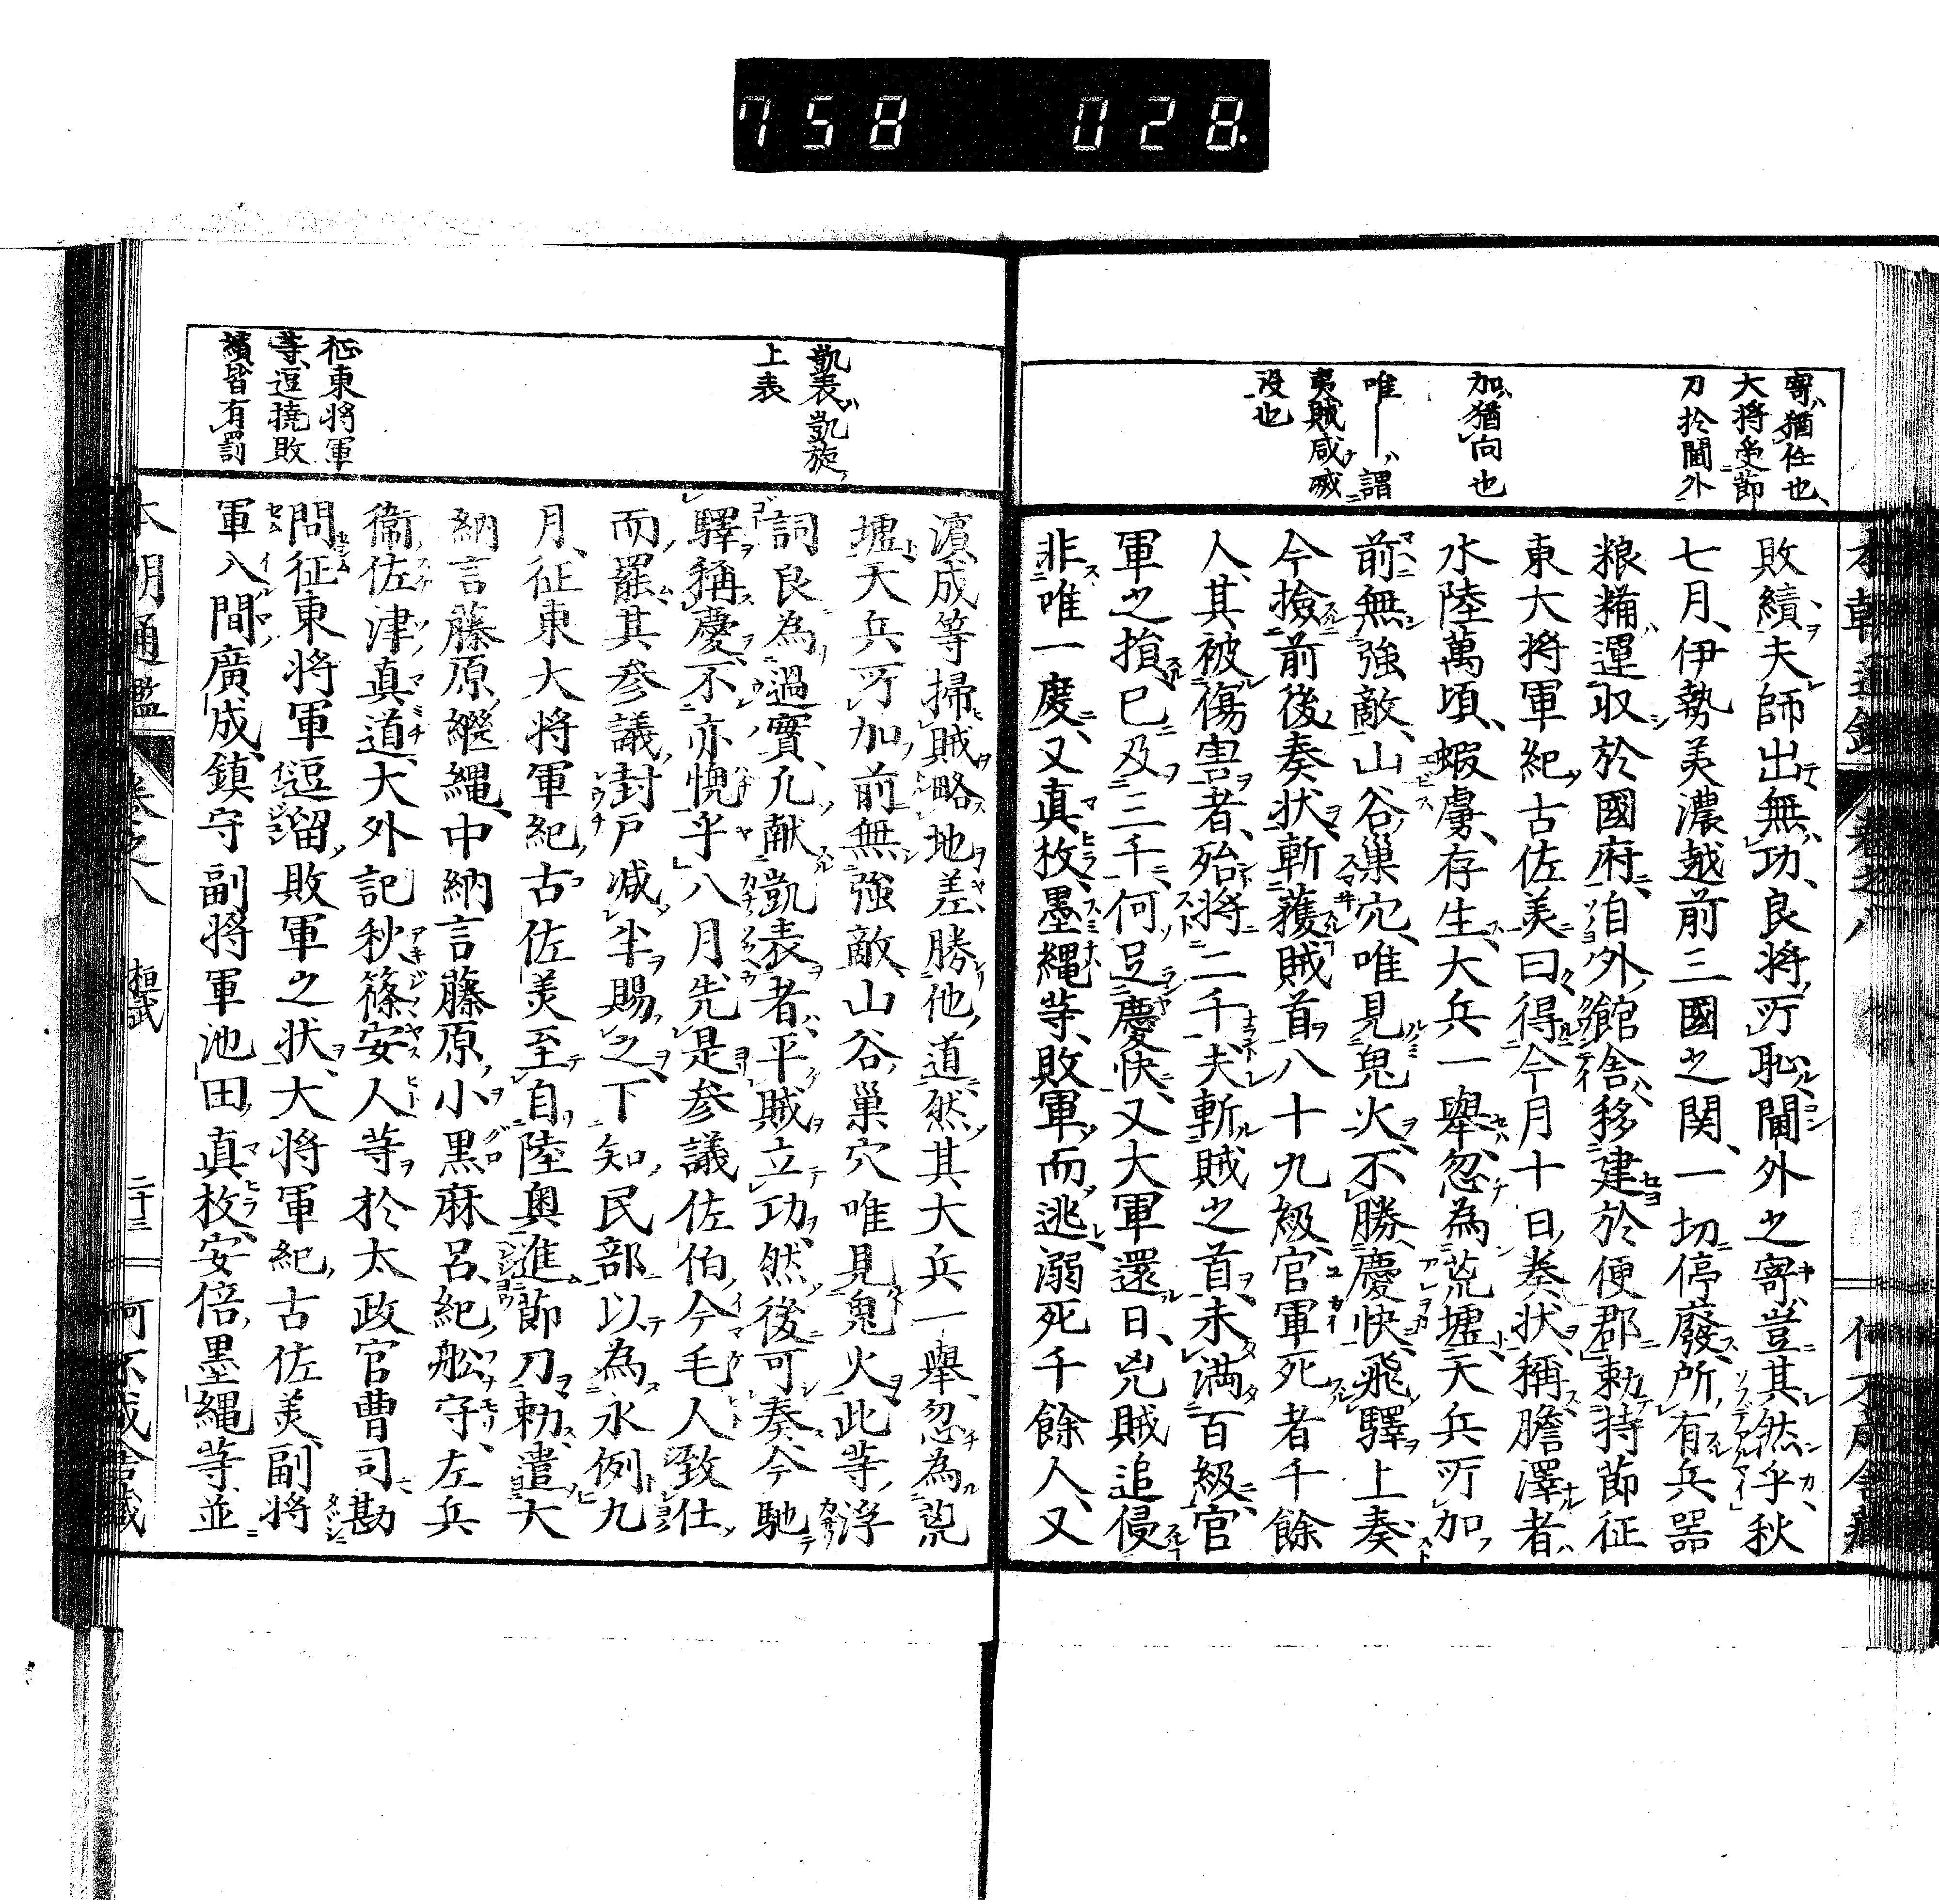 758 028.
寄ハ猶任也、
大將受節
刀於閫外
加ハ猶向也
唯――ハ謂
夷賊咸滅
没也
敗績夫師出無功、良將所恥閫外之寄豈其然乎、秋
七月、伊勢美濃越前三國之関、一切停廢所有兵器
粮糒運収於國府、自外館舍移建於便郡、勅持節征
東大將軍紀古佐美曰、得今月十日奏状、稱膽澤者
水陸萬頃、蝦虜存生、大兵一擧忽為荒墟、天兵所加
前無強敵、山谷巢穴、唯見鬼火、不勝慶快、飛驛上奏
今撿前後奏状、斬獲賊首八十九級、官軍死者千餘
人、其被傷害者、殆將二千、夫斬賊之首、未満百級、官
軍之損已及三千、何足慶快、又大軍還日、兇賊追侵
非唯一度、又真枚墨縄等、敗軍而逃、溺死千餘人、又
凱表ハ凱旋ノ
上表
征東將軍
等逗撓敗
績皆有罰
濱成等掃賊略地、差勝他道、然其大兵一擧、忽為荒
墟、天兵所加前無強敵、山谷巢穴唯見鬼火、此等浮
詞良為過實、凡献凱表者、平賊立功、然後可奏、今馳
驛稱慶、不亦愧乎、八月先是参議佐伯今毛人致仕、
而罷其参議、封戸減半賜之、下知民部以為永例、九
月、征東大將軍紀古佐美至自陸奥進節刀、勅遣大
納言藤原繼縄、中納言藤原小黒麻呂、紀舩守、左兵
衛佐津真道、大外記秋篠安人等於太政官曹司勘
問征東將軍逗留敗軍之状、大將軍紀古佐美、副將
軍入間廣成、鎮守副將軍池田真枚、安倍墨縄等、並
本朝通鑑 卷之八 桓武 二十三